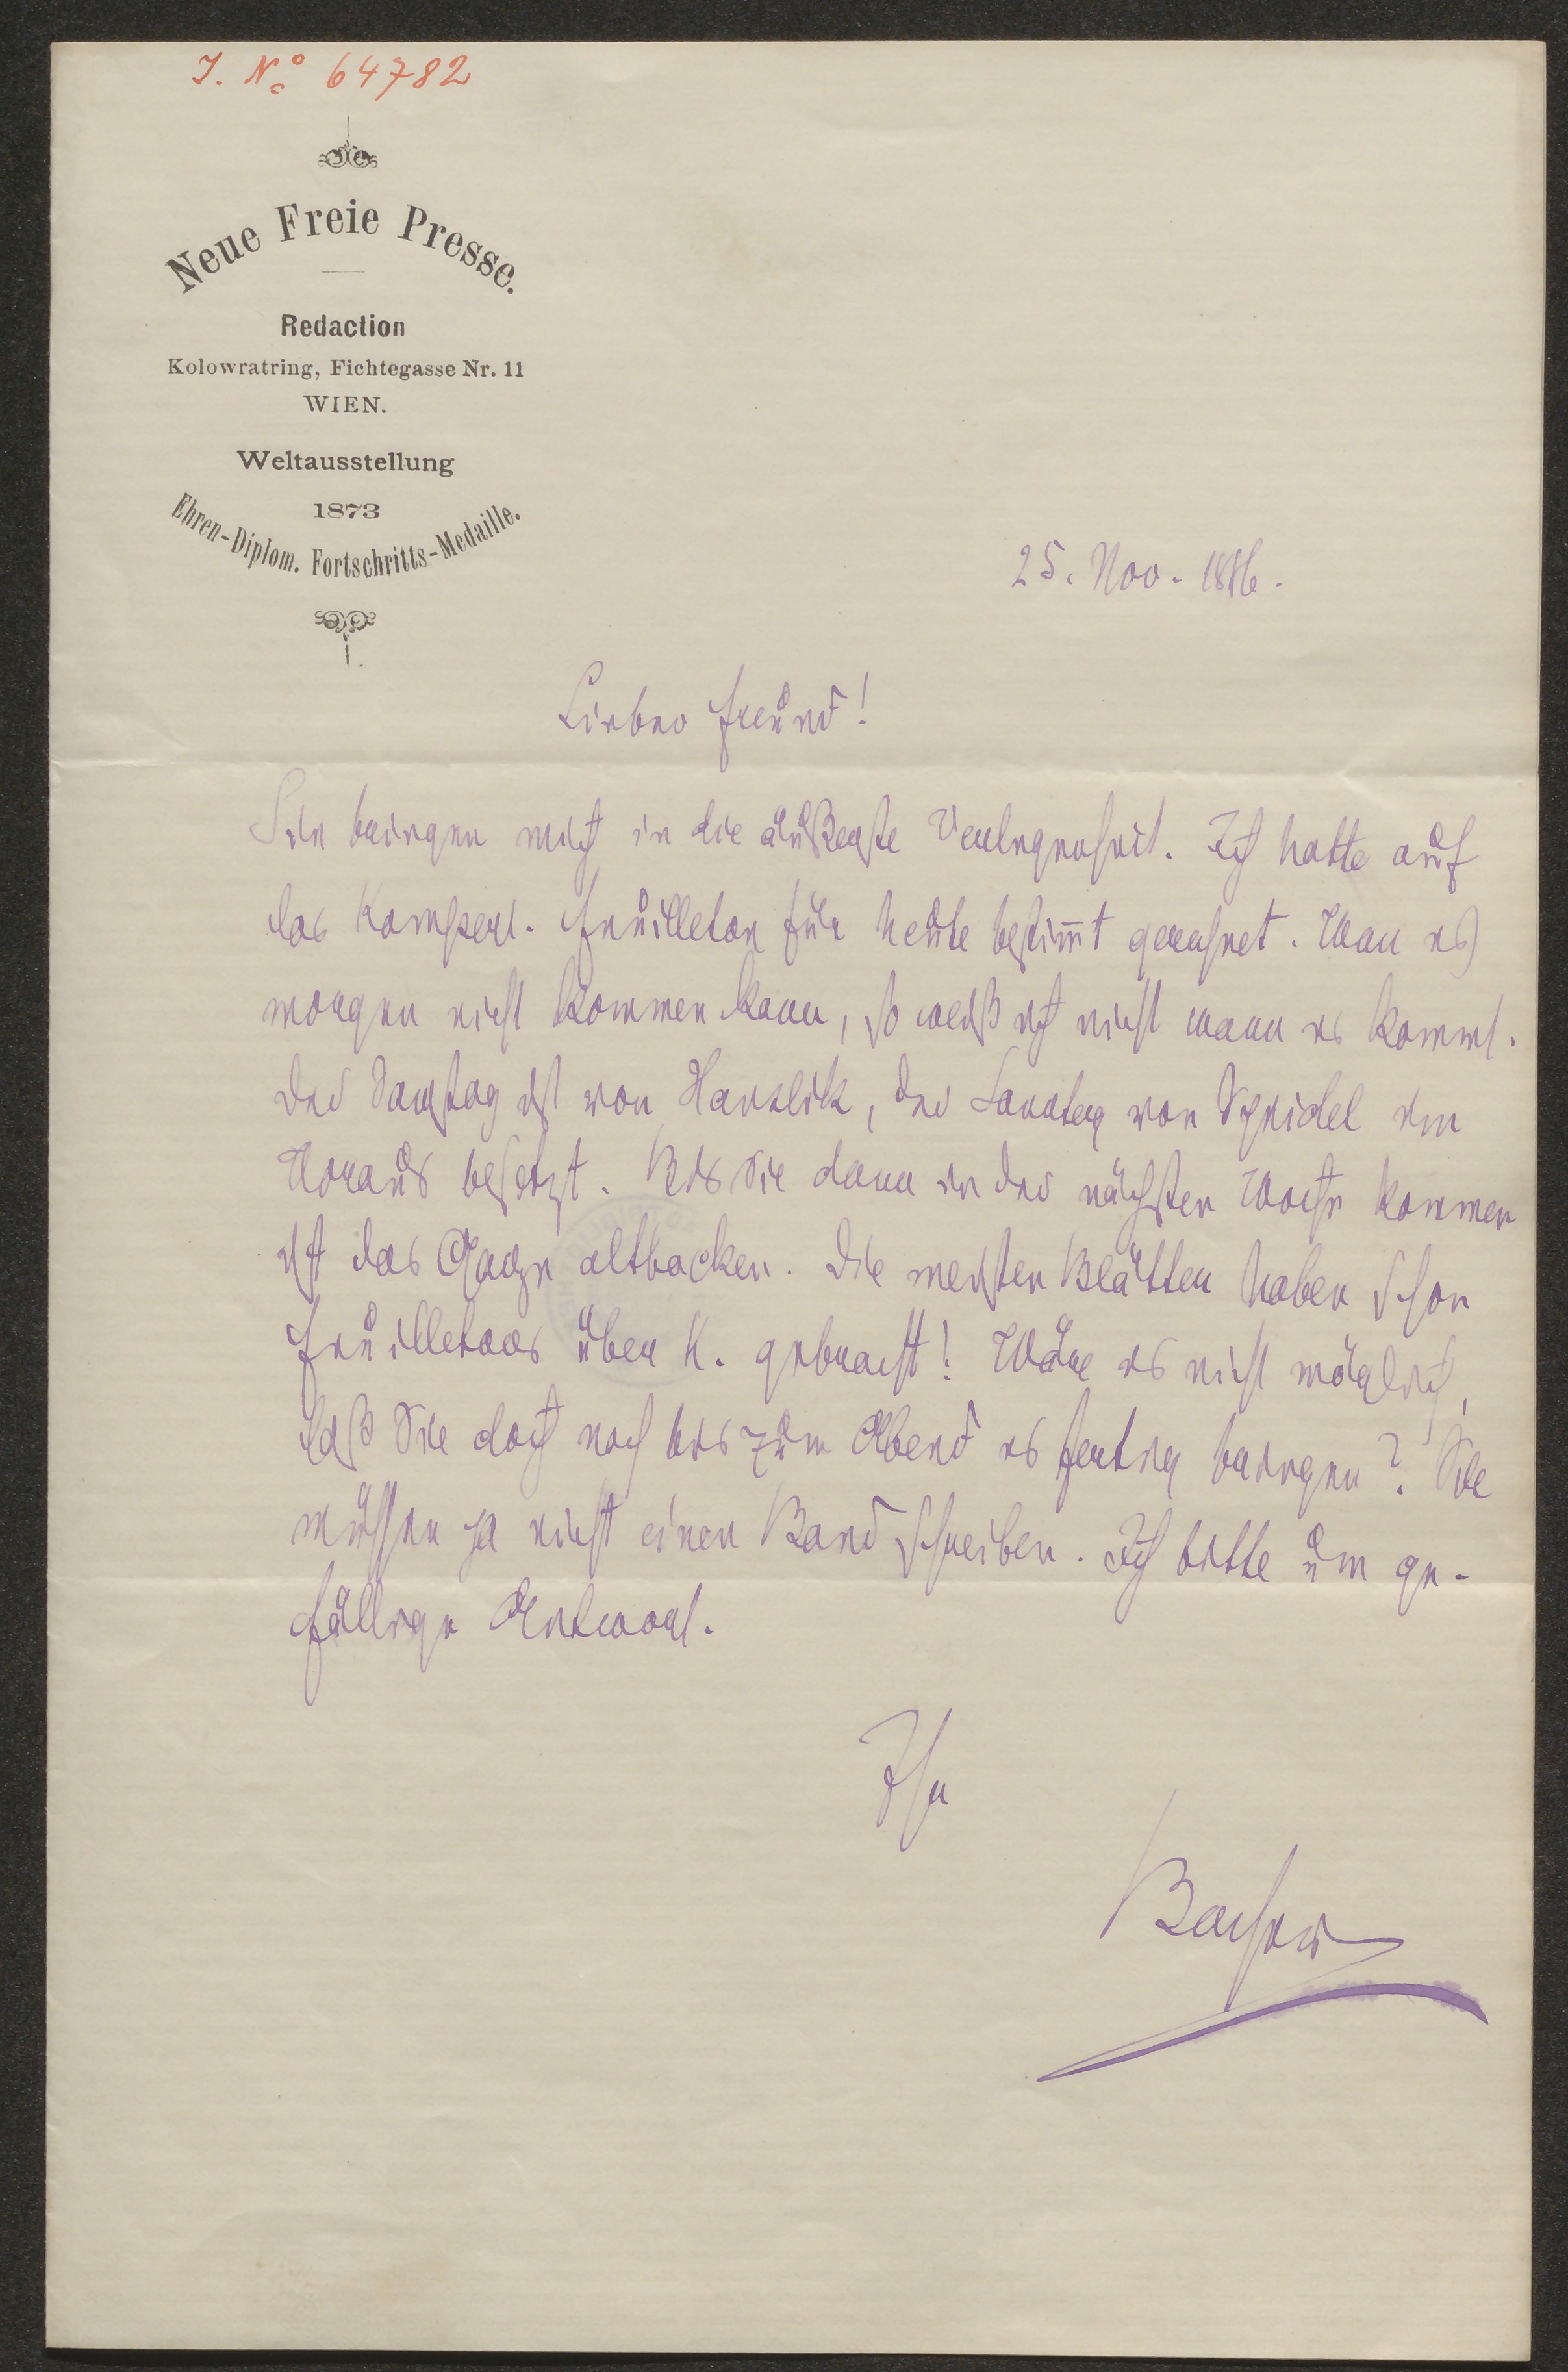 J. No 64782
Neue Freie Presse.
Redaction
Kolowratring, Fichtegasse Nr. 11
WIEN.
Weltausstellung
1873
Ehren-Diplom. Fortschritts-Medaille.
25. Nov. 1886.
Lieber Freund!
Sie bringen mich in die äußerste Verlegenheit. Ich hatte auf
das Kompert-Feuilleton für heute bestimt gerechnet. Wenn es
morgen nicht kommen kann, so weiß ich nicht wann es kommt.
Der Samstag ist von Hanslik, der Sonntag von Speidel im
Voraus besetzt. Bis Sie dann in der nächsten Woche kommen
ist das Ganze altbacken. Die meisten Blätter haben schon
Feuilletons über K. gebracht! Wäre es nicht möglich,
daß Sie doch noch bis zum Abend es fertig bringen? Sie
müssen ja nicht einen Band schreiben. Ich bitte um ge-
fällige Antwort.
Ihr
Bacher